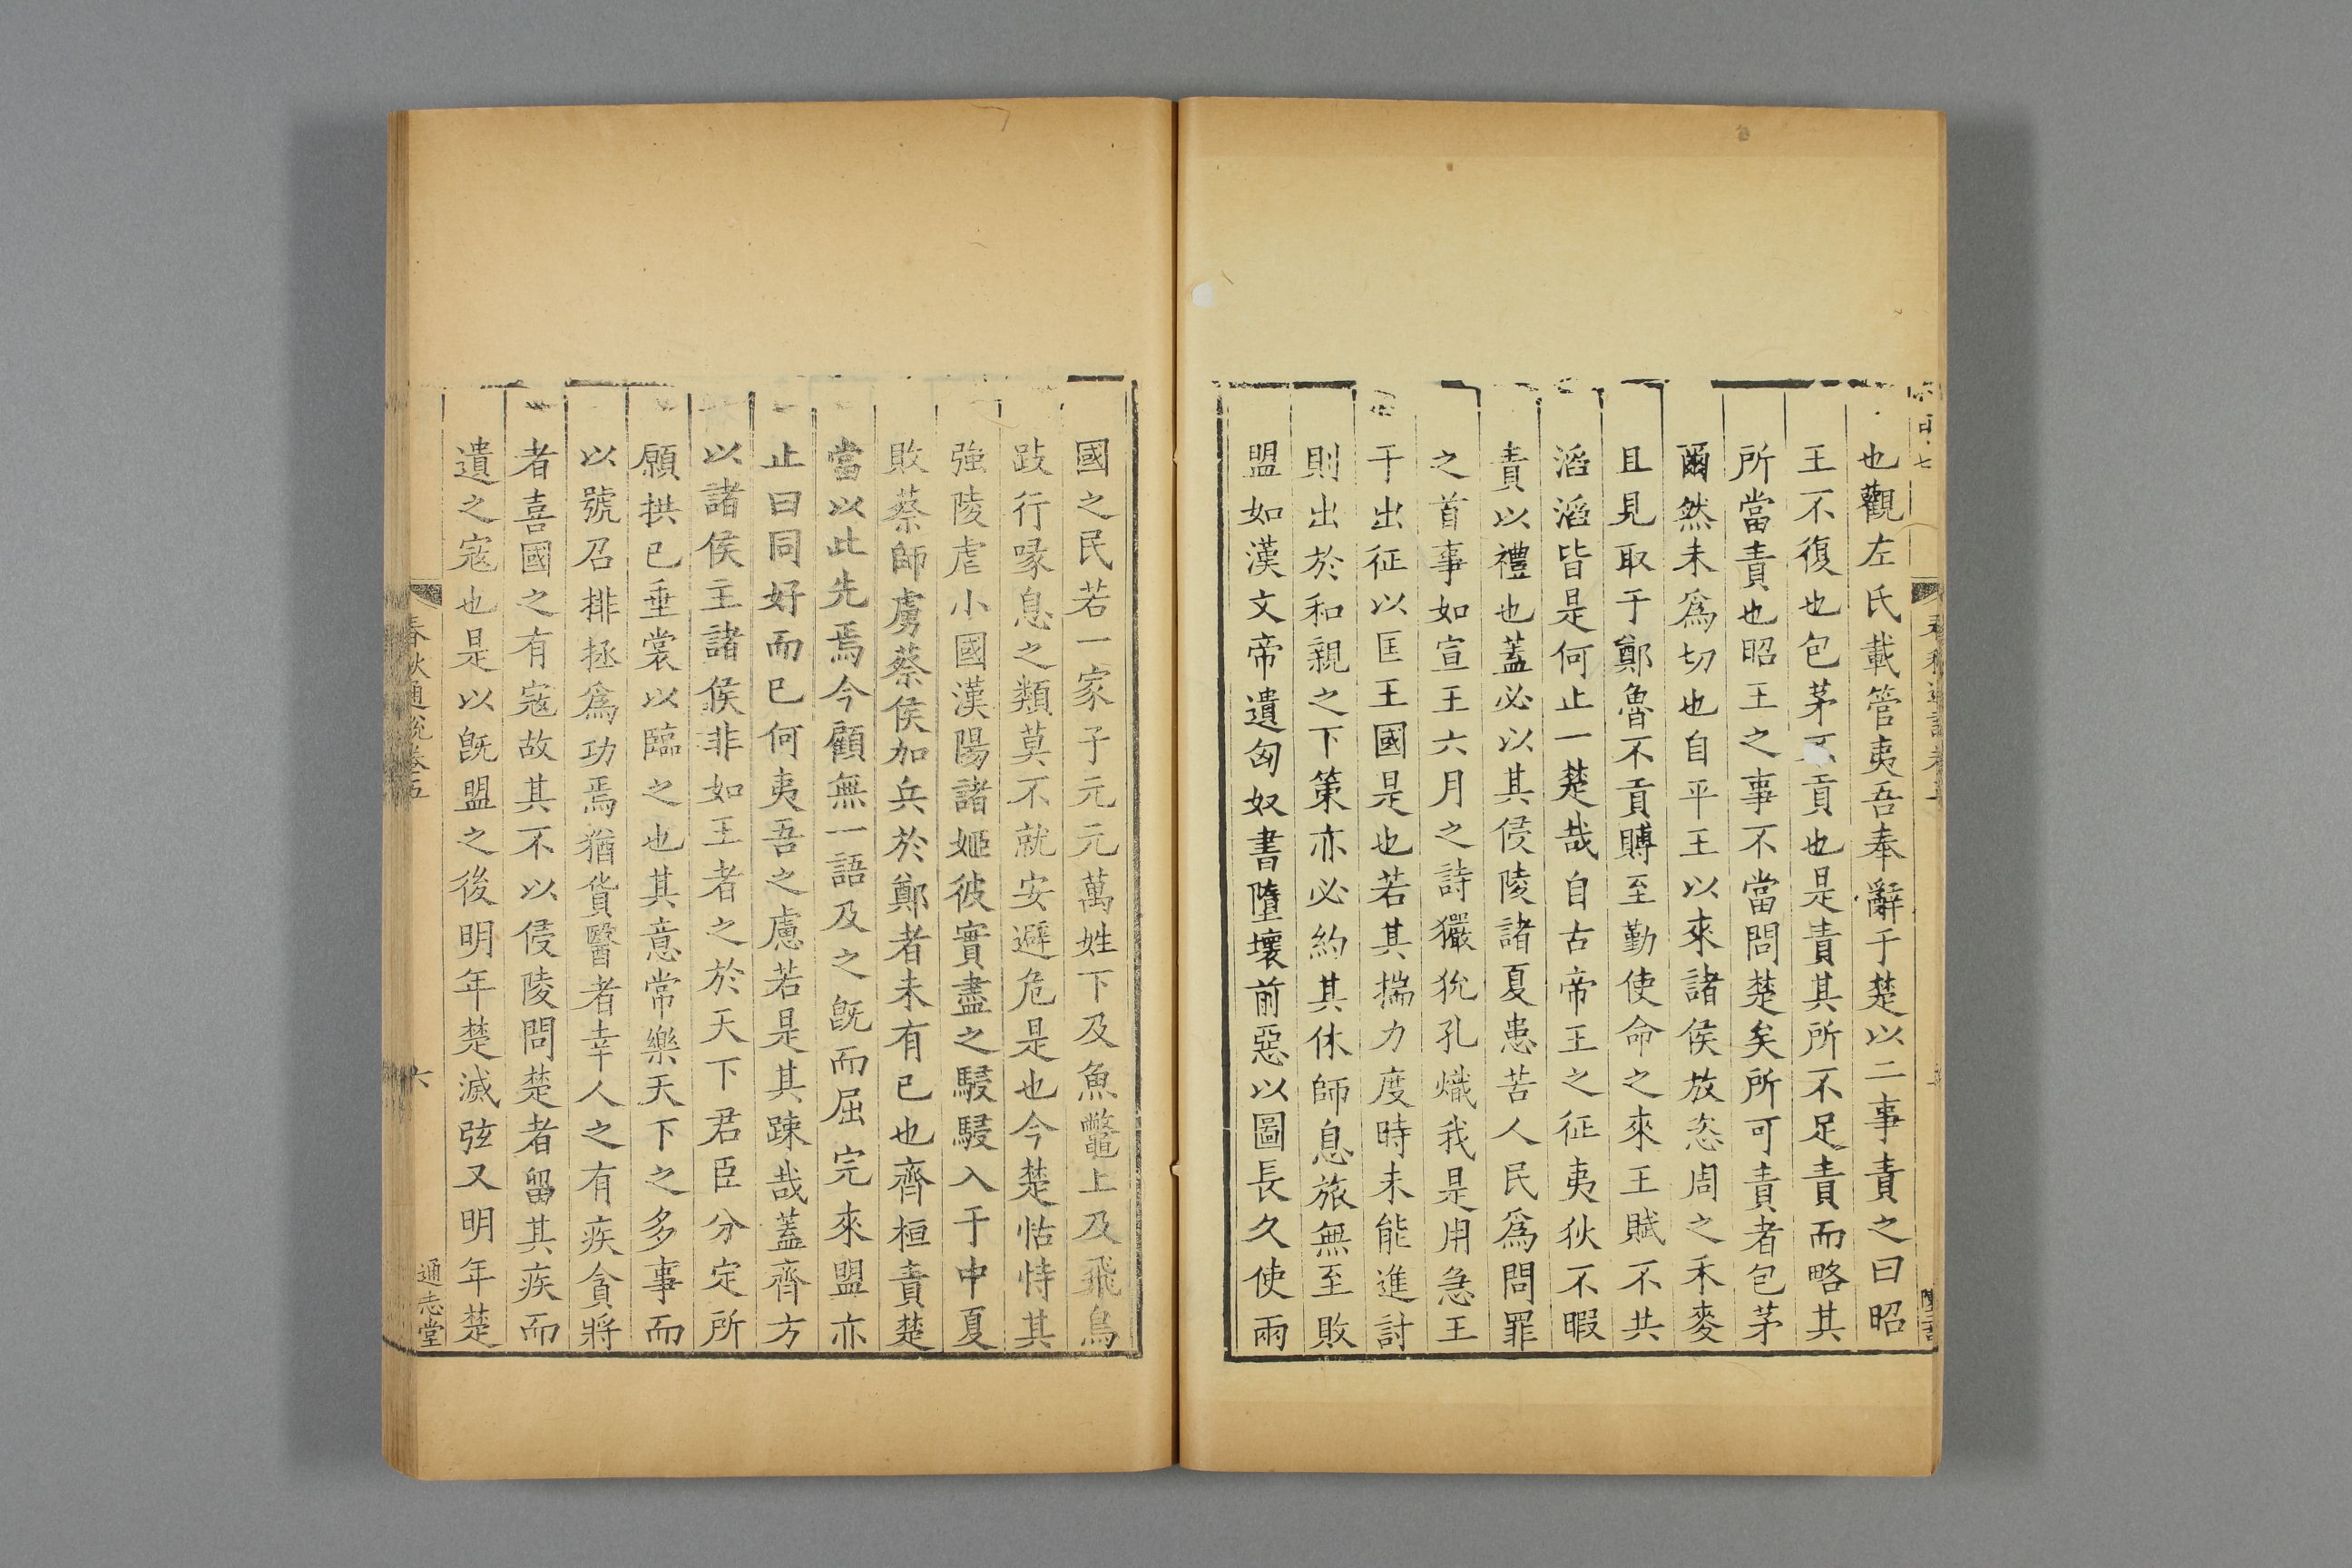 也觀左氏載管夷吾奉辭于楚以二事責之曰昭
王不復也包茅不貢也是責其所不足責而略其
所當責也昭王之事不當問楚矣所可責者包茅
爾然未爲切也自平王以來諸侯放恣周之禾麥
且見取于鄭魯不貢賻至勤使命之來王賦不共
滔滔皆是何止一楚哉自古帝王之征夷狄不暇
責以禮也蓋必以其侵陵諸夏患苦人民爲問罪
之首事如宣王六月之詩玁狁孔熾我是用急王
于出征以匡王國是也若其揣力度時未能進討
則出於和親之下策亦必約其休師息旅無至敗
盟如漢文帝遺匈奴書墮壞前惡以圖長久使兩
國之民若一家子元元萬姓下及魚鼈上及飛鳥
跂行喙息之類莫不就安避危是也今楚怙恃其
強陵虐小國漢陽諸姬彼實盡之駸駸入于中夏
敗蔡師虜蔡侯加兵於鄭者未有已也齊桓責楚
當以此先焉今顧無一語及之旣而屈完來盟亦
止曰同好而已何夷吾之慮若是其疎哉蓋齊方
以諸侯主諸侯非如王者之於天下君臣分定所
願拱已垂裳以臨之也其意常樂天下之多事而
以號召排拯爲功焉猶貨醫者幸人之有疾貪將
者喜國之有寇故其不以侵陵問楚者留其疾而
遺之寇也是以旣盟之後明年楚滅弦又明年楚
春秋通說卷五
六
通志堂